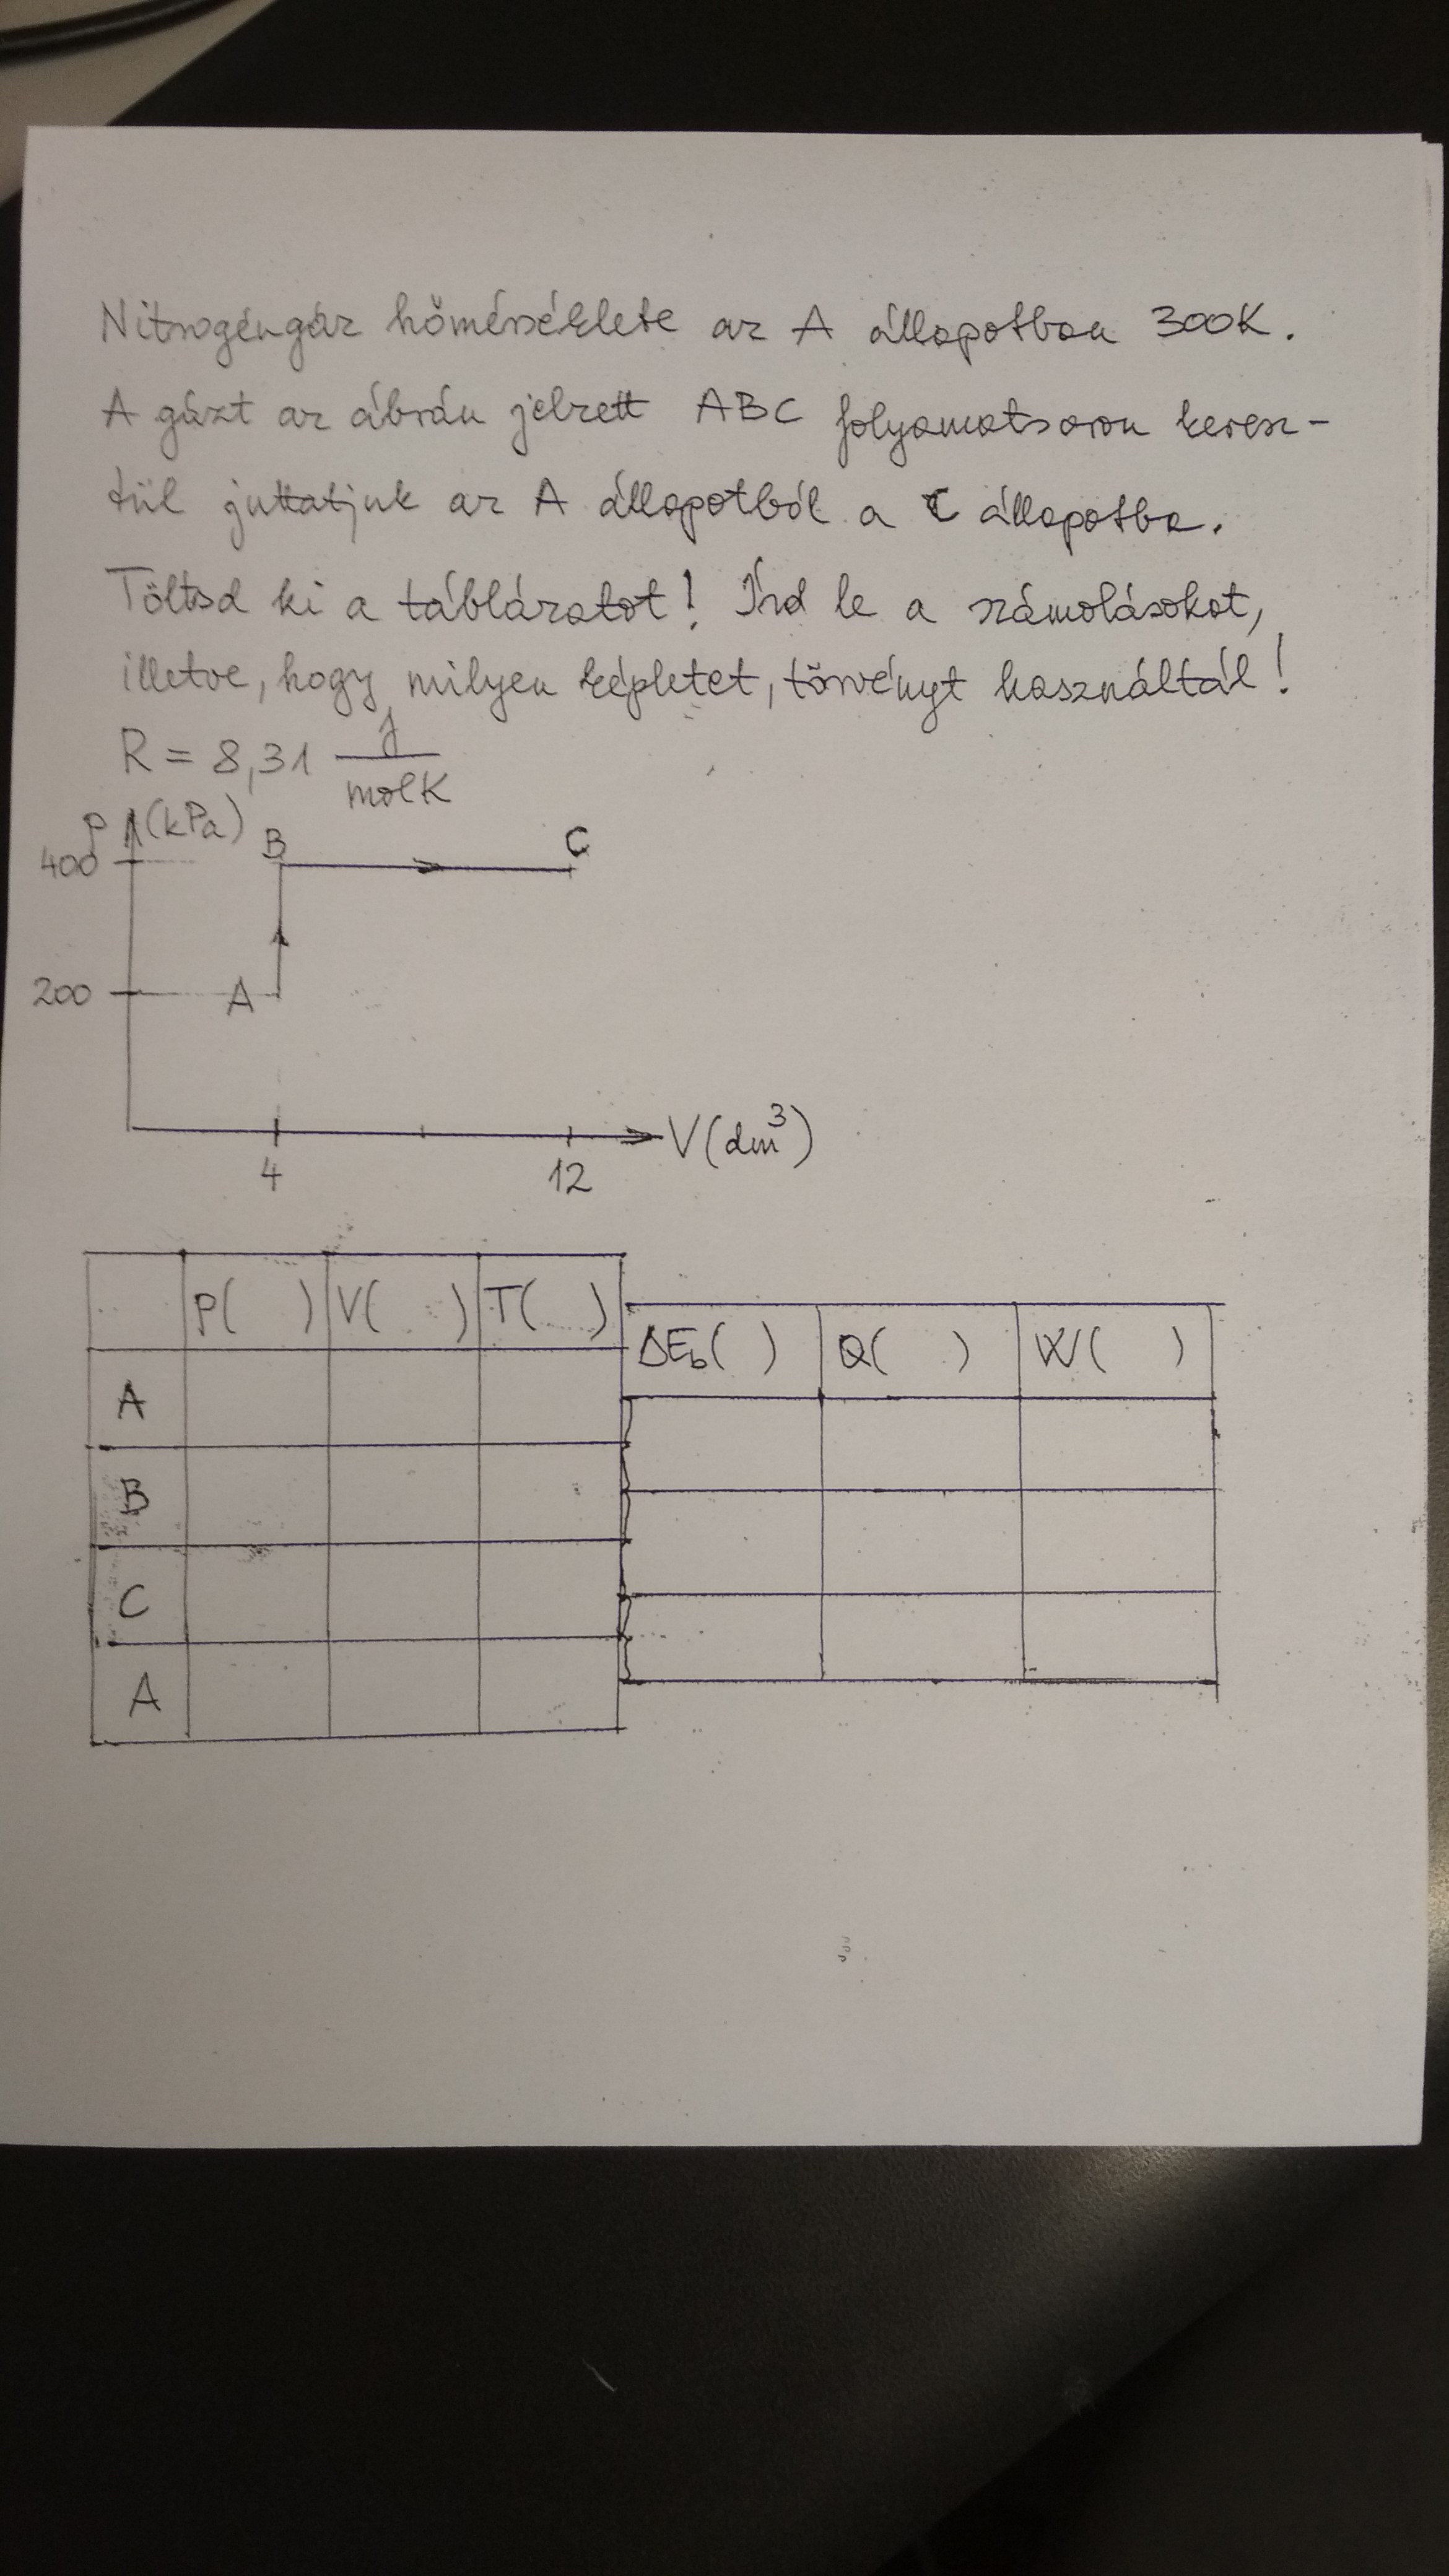 Nitrogéngáz hőmérséklete az A állapotban 300K.
A gázt az ábrán jelzett ABC folyamatsoron keresz-
tül juttatjuk az A állapotból a C állapotba.
Töltsd ki a táblázatot! Írd le a számolásokat,
illetve, hogy milyen képletet, törvényt használtál!
R = 8,31 J/molK
P (kPa)
B C
400
200 A
V(dm³)
4 12
P( ) V( ) T( ) ΔEb( ) Q( ) W( )
A
B
C
A